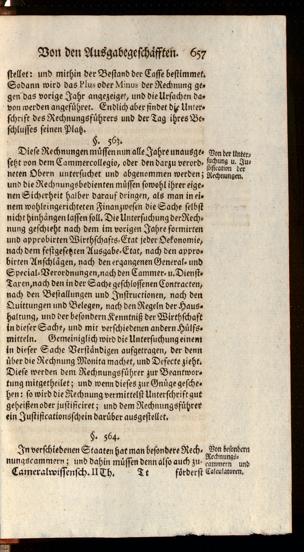 Von den Ausgabegeschäfften. 657
stellet: und mithin der Bestand der Casse bestimmet.
Sodann wird das Plus oder Minus der Rechnung ge-
gen das vorige Jahr angezeiget, und die Ursachen da-
von werden angeführet. Endlich aber findet die Unter-
schrift des Rechnungsführers und der Tag ihres Be-
schlusses seinen Platz.
§. 563.
Diese Rechnungen müssen nun alle Jahre unausge-
setzt von dem Cammercollegio, oder den darzu verord-
neten Obern untersuchet und abgenommen werden;
und die Rechnungsbedienten müssen sowohl ihrer eige-
nen Sicherheit halber darauf dringen, als man in ei-
nem wohleingerichteten Finanzwesen die Sache selbst
nicht hinhängen lassen soll. Die Untersuchung der Rech-
nung geschieht nach dem im vorigen Jahre formirten
und approbirten Wirthschafts-Etat jeder Oeconomie,
nach dem festgesetzten Ausgabe-Etat, nach den appro-
birten Anschlägen, nach den ergangenen General- und
Special-Verordnungen, nach den Cammer- u. Dienst-
Taxen, nach den in der Sache geschlossenen Contracten,
nach den Bestallungen und Instructionen, nach den
Quittungen und Belegen, nach den Regeln der Haus-
haltung, und der besondern Kenntniß der Wirthschaft
in dieser Sache, und mit verschiedenen andern Hülfs-
mitteln. Gemeiniglich wird die Untersuchung einem
in dieser Sache Verständigen aufgetragen, der denn
über die Rechnung Monita machet, und Defecte zieht.
Diese werden dem Rechnungsführer zur Beantwor-
tung mitgetheilet; und wenn dieses zur Gnüge gesche-
hen: so wird die Rechnung vermittelst Unterschrift gut
geheißen oder justificiret; und dem Rechnungsführer
ein Justificationsschein darüber ausgestellet.
Von der Unter-
suchung u. Ju-
stification der
Rechnungen.
§. 564.
In verschiedenen Staaten hat man besondere Rech-
nungscammern; und dahin müssen denn also auch zu-
Von besondern
Rechnungs-
cammern und
Calculatoren.
Cameralwissensch. II Th. T t förderst